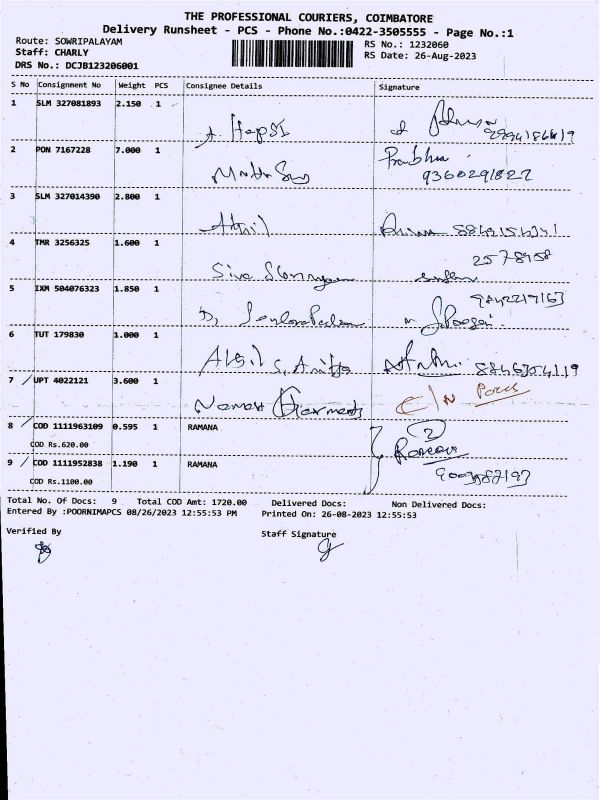 THE PROFESSIONAL COURIERS, COIMBATORE
Delivery Runsheet - PCS - Phone No.:0422-3505555 - Page No.:1
Route: SOWRIPALAYAM
Staff: CHARLY
DRS No.: DCJB123206001
RS No.: 1232060
RS Date: 26-Aug-2023
S No Consignment No Weight PCS Consignee Details Signature
1 SLM 327081893 2.150 1
Hepsi
2 PON 7167228 7.000 1 Prabhu
9360291827
3 SLM 327014390 2.800 1
4 TMR 3256325 1.600 1
Siva
5 IXM 504076323 1.850 1
6 TUT 179830 1.000 1
7 / UPT 4022121 3.600 1
8 / COD 1111963109 0.595 1 RAMANA
COD Rs.620.00
2
9 / COD 1111952838 1.190 1 RAMANA
COD Rs.1100.00
Total No. Of Docs: 9 Total COD Amt: 1720.00 Delivered Docs: Non Delivered Docs:
Entered By :POORNIMAPCS 08/26/2023 12:55:53 PM Printed On: 26-08-2023 12:55:53
Verified By Staff Signature